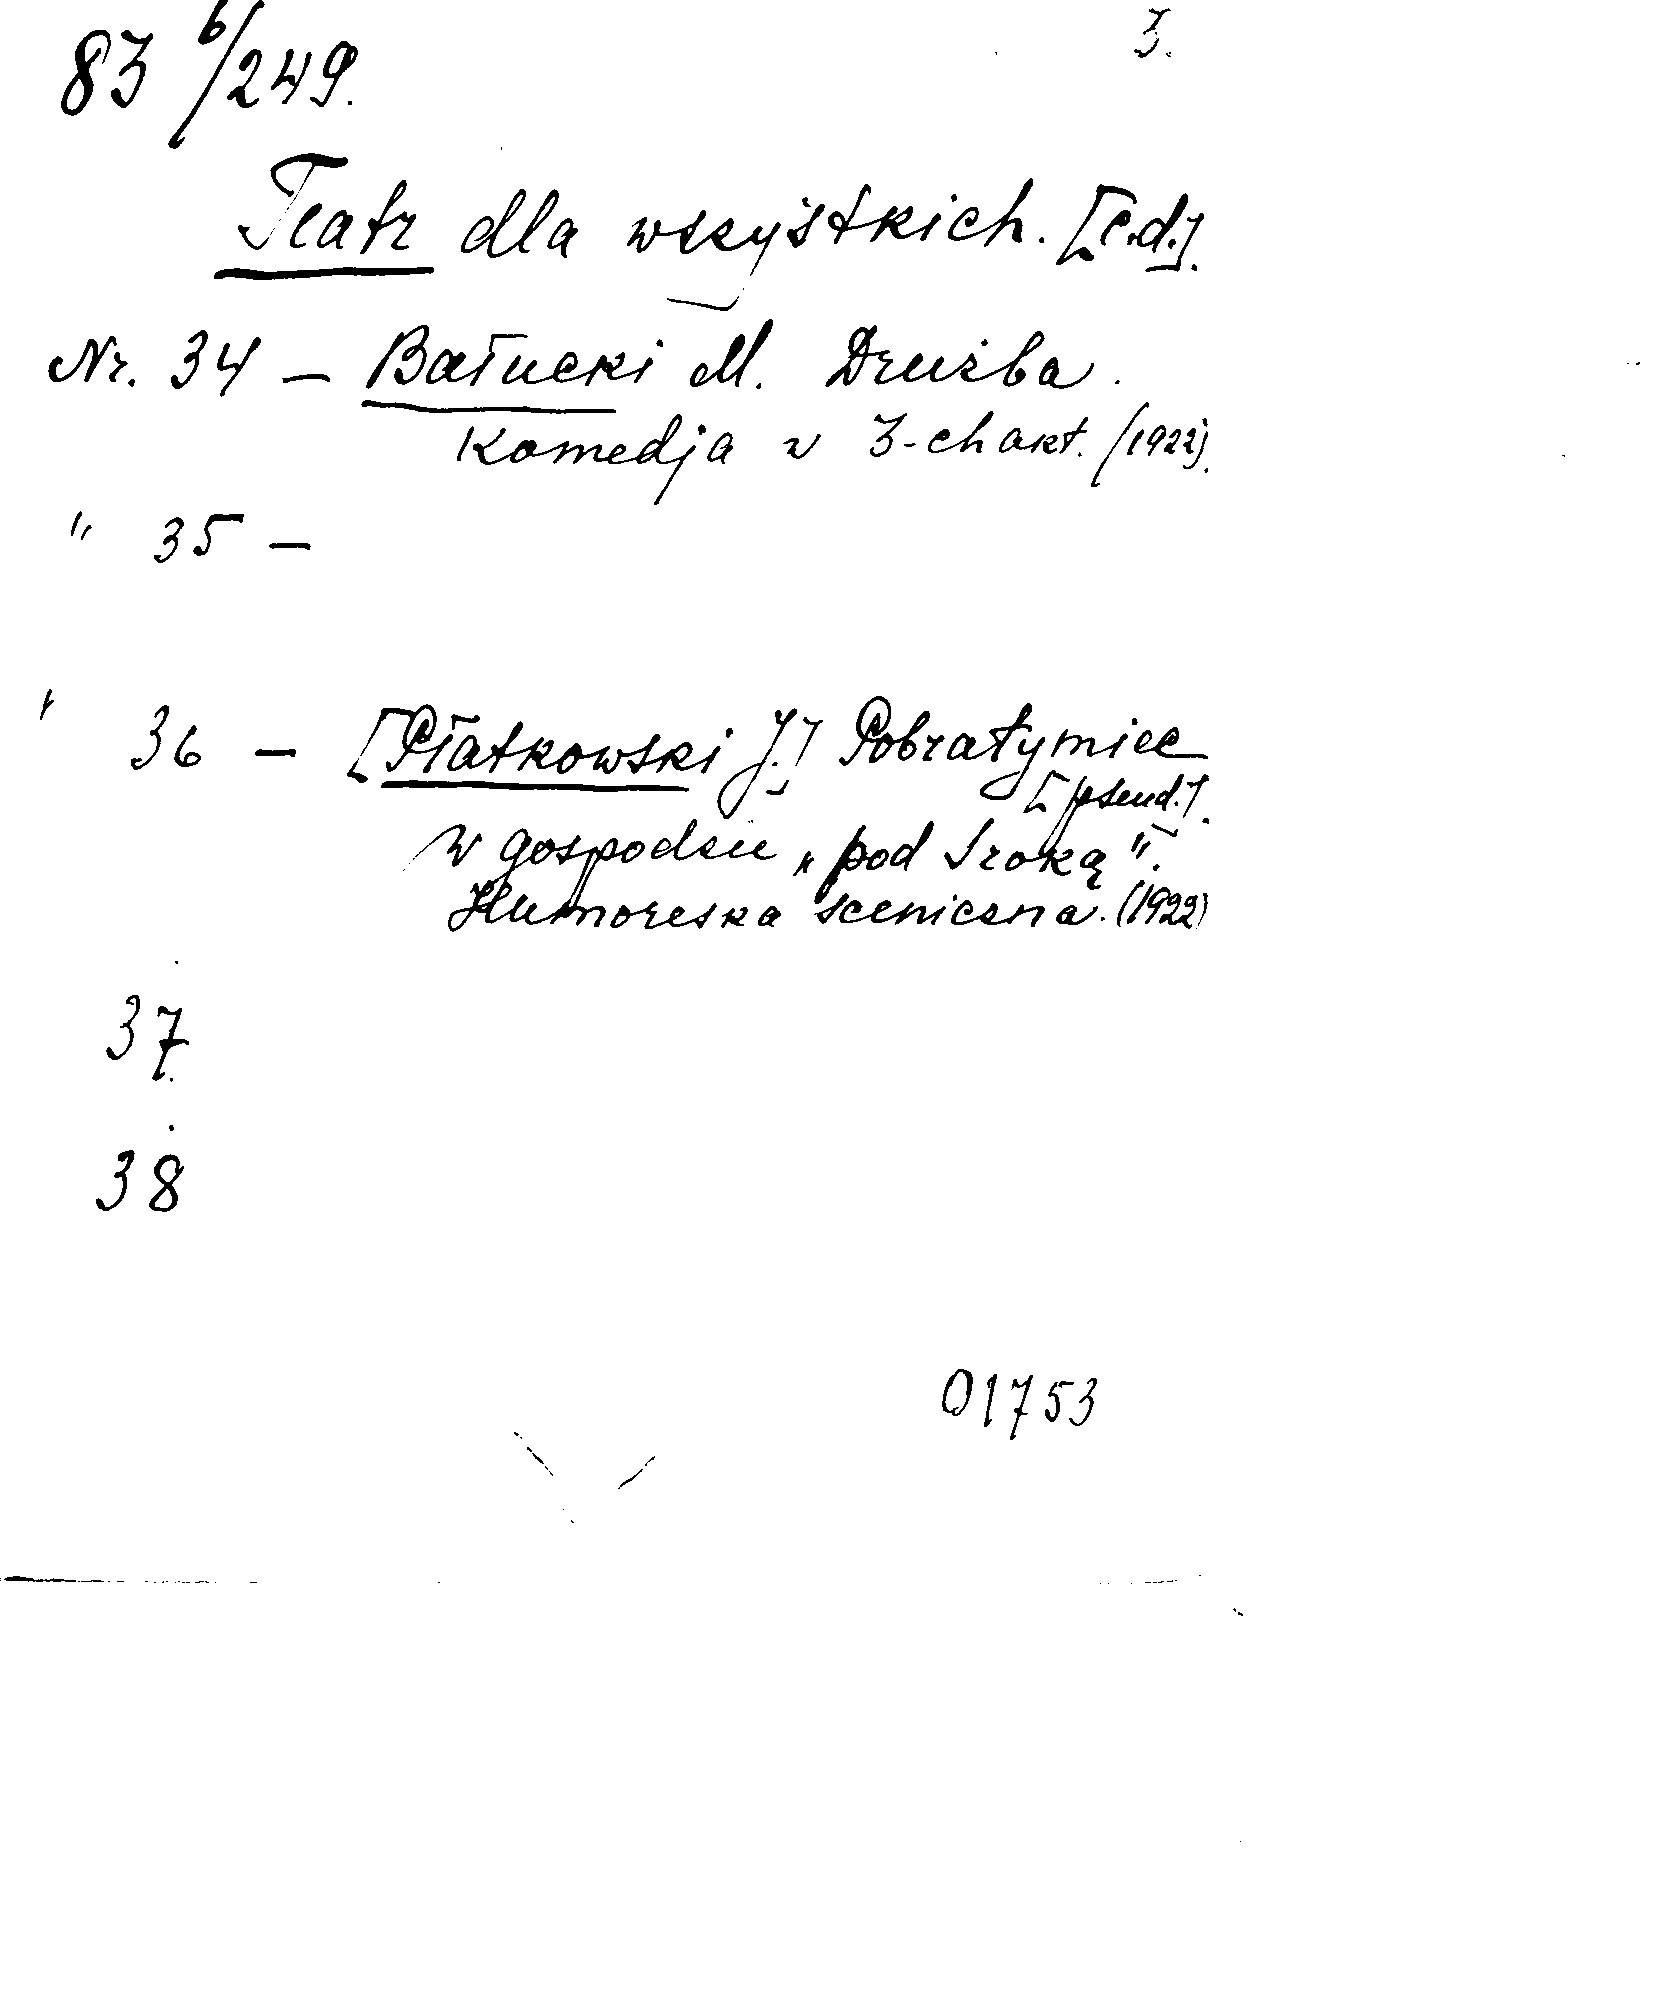 83 b/249. 3.
Teatr dla wszystkich. [c.d.].
Nr. 34 – Bałucki M. Drużba.
Komedja w 3-ch akt. (1922).
" 35 –
" 36 – [Płatkowski J.] Pobratymiec
[pseud.].
W gospodzie „pod Sroką”.
Humoreska sceniczna. (1922)
37.
38
01753